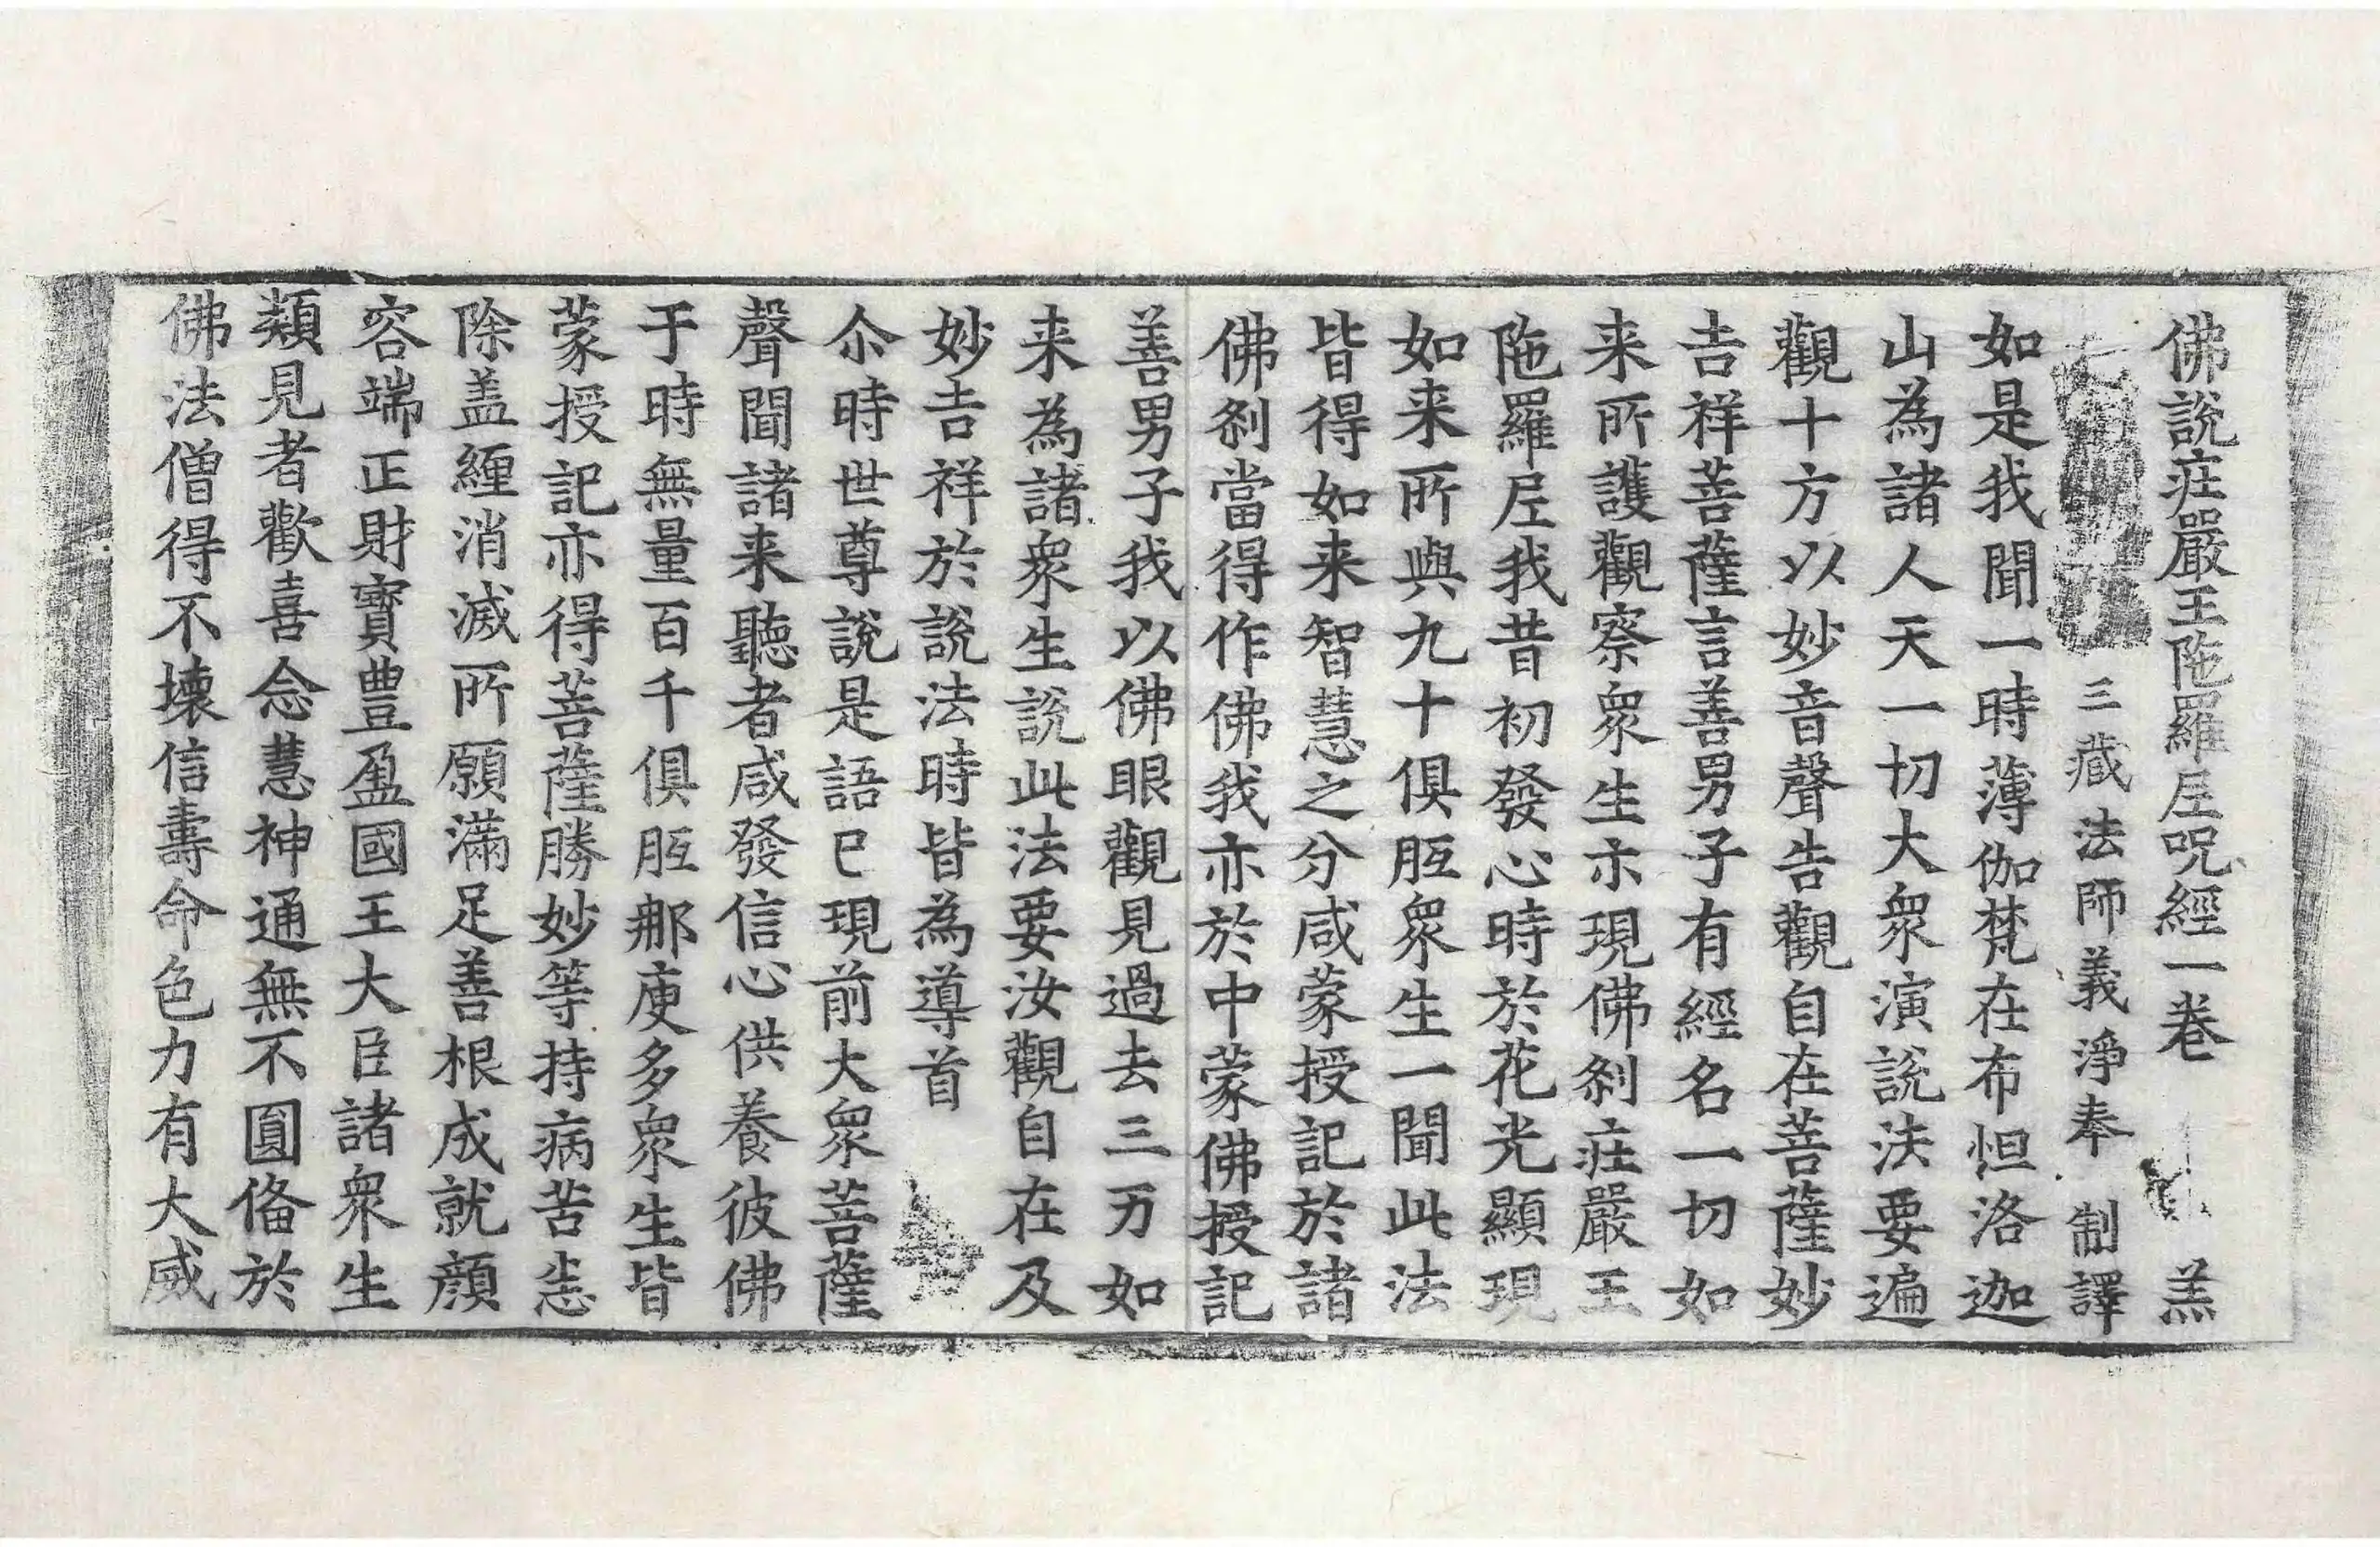 佛說庄嚴王陁羅𡰱呪經一卷 羔
三藏法師義淨奉 制譯
如是我聞一時薄伽梵在布怛洛迦
山為諸人天一切大衆演說法要遍
觀十方以妙音聲告觀自在菩薩妙
吉祥菩薩言善男子有經名一切如
来所護觀察衆生亦現佛刹庄嚴王
陁羅𡰱我昔初發心時於花光顯現
如来所與九十俱胝衆生一聞此法
皆得如来智慧之分咸蒙授記於諸
佛刹當得作佛我亦於中蒙佛授記
善男子我以佛眼觀見過去三万如
来為諸衆生說此法要汝觀自在及
妙吉祥於說法時皆為導首
尒時世尊說是語已現前大衆菩薩
聲聞諸来聽者咸發信心供養彼佛
于時無量百千俱胝那庾多衆生皆
蒙授記亦得菩薩勝妙等持病苦恙
除盖纏消滅所願滿足善根成就顔
容端正財寳豊盈國王大臣諸衆生
類見者歡喜念慧神通無不圓俻於
佛法僧得不壞信壽命色力有大威